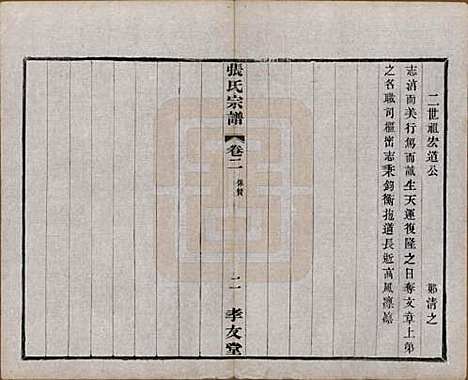 二世祖宏道公　鄭清之
志潔而美行篤而誠生天運復隆之日奪文章上第
之名職司樞密志秉鈞衡抱道長逝高風凜
張氏宗譜　卷二　像贊　二　孝友堂